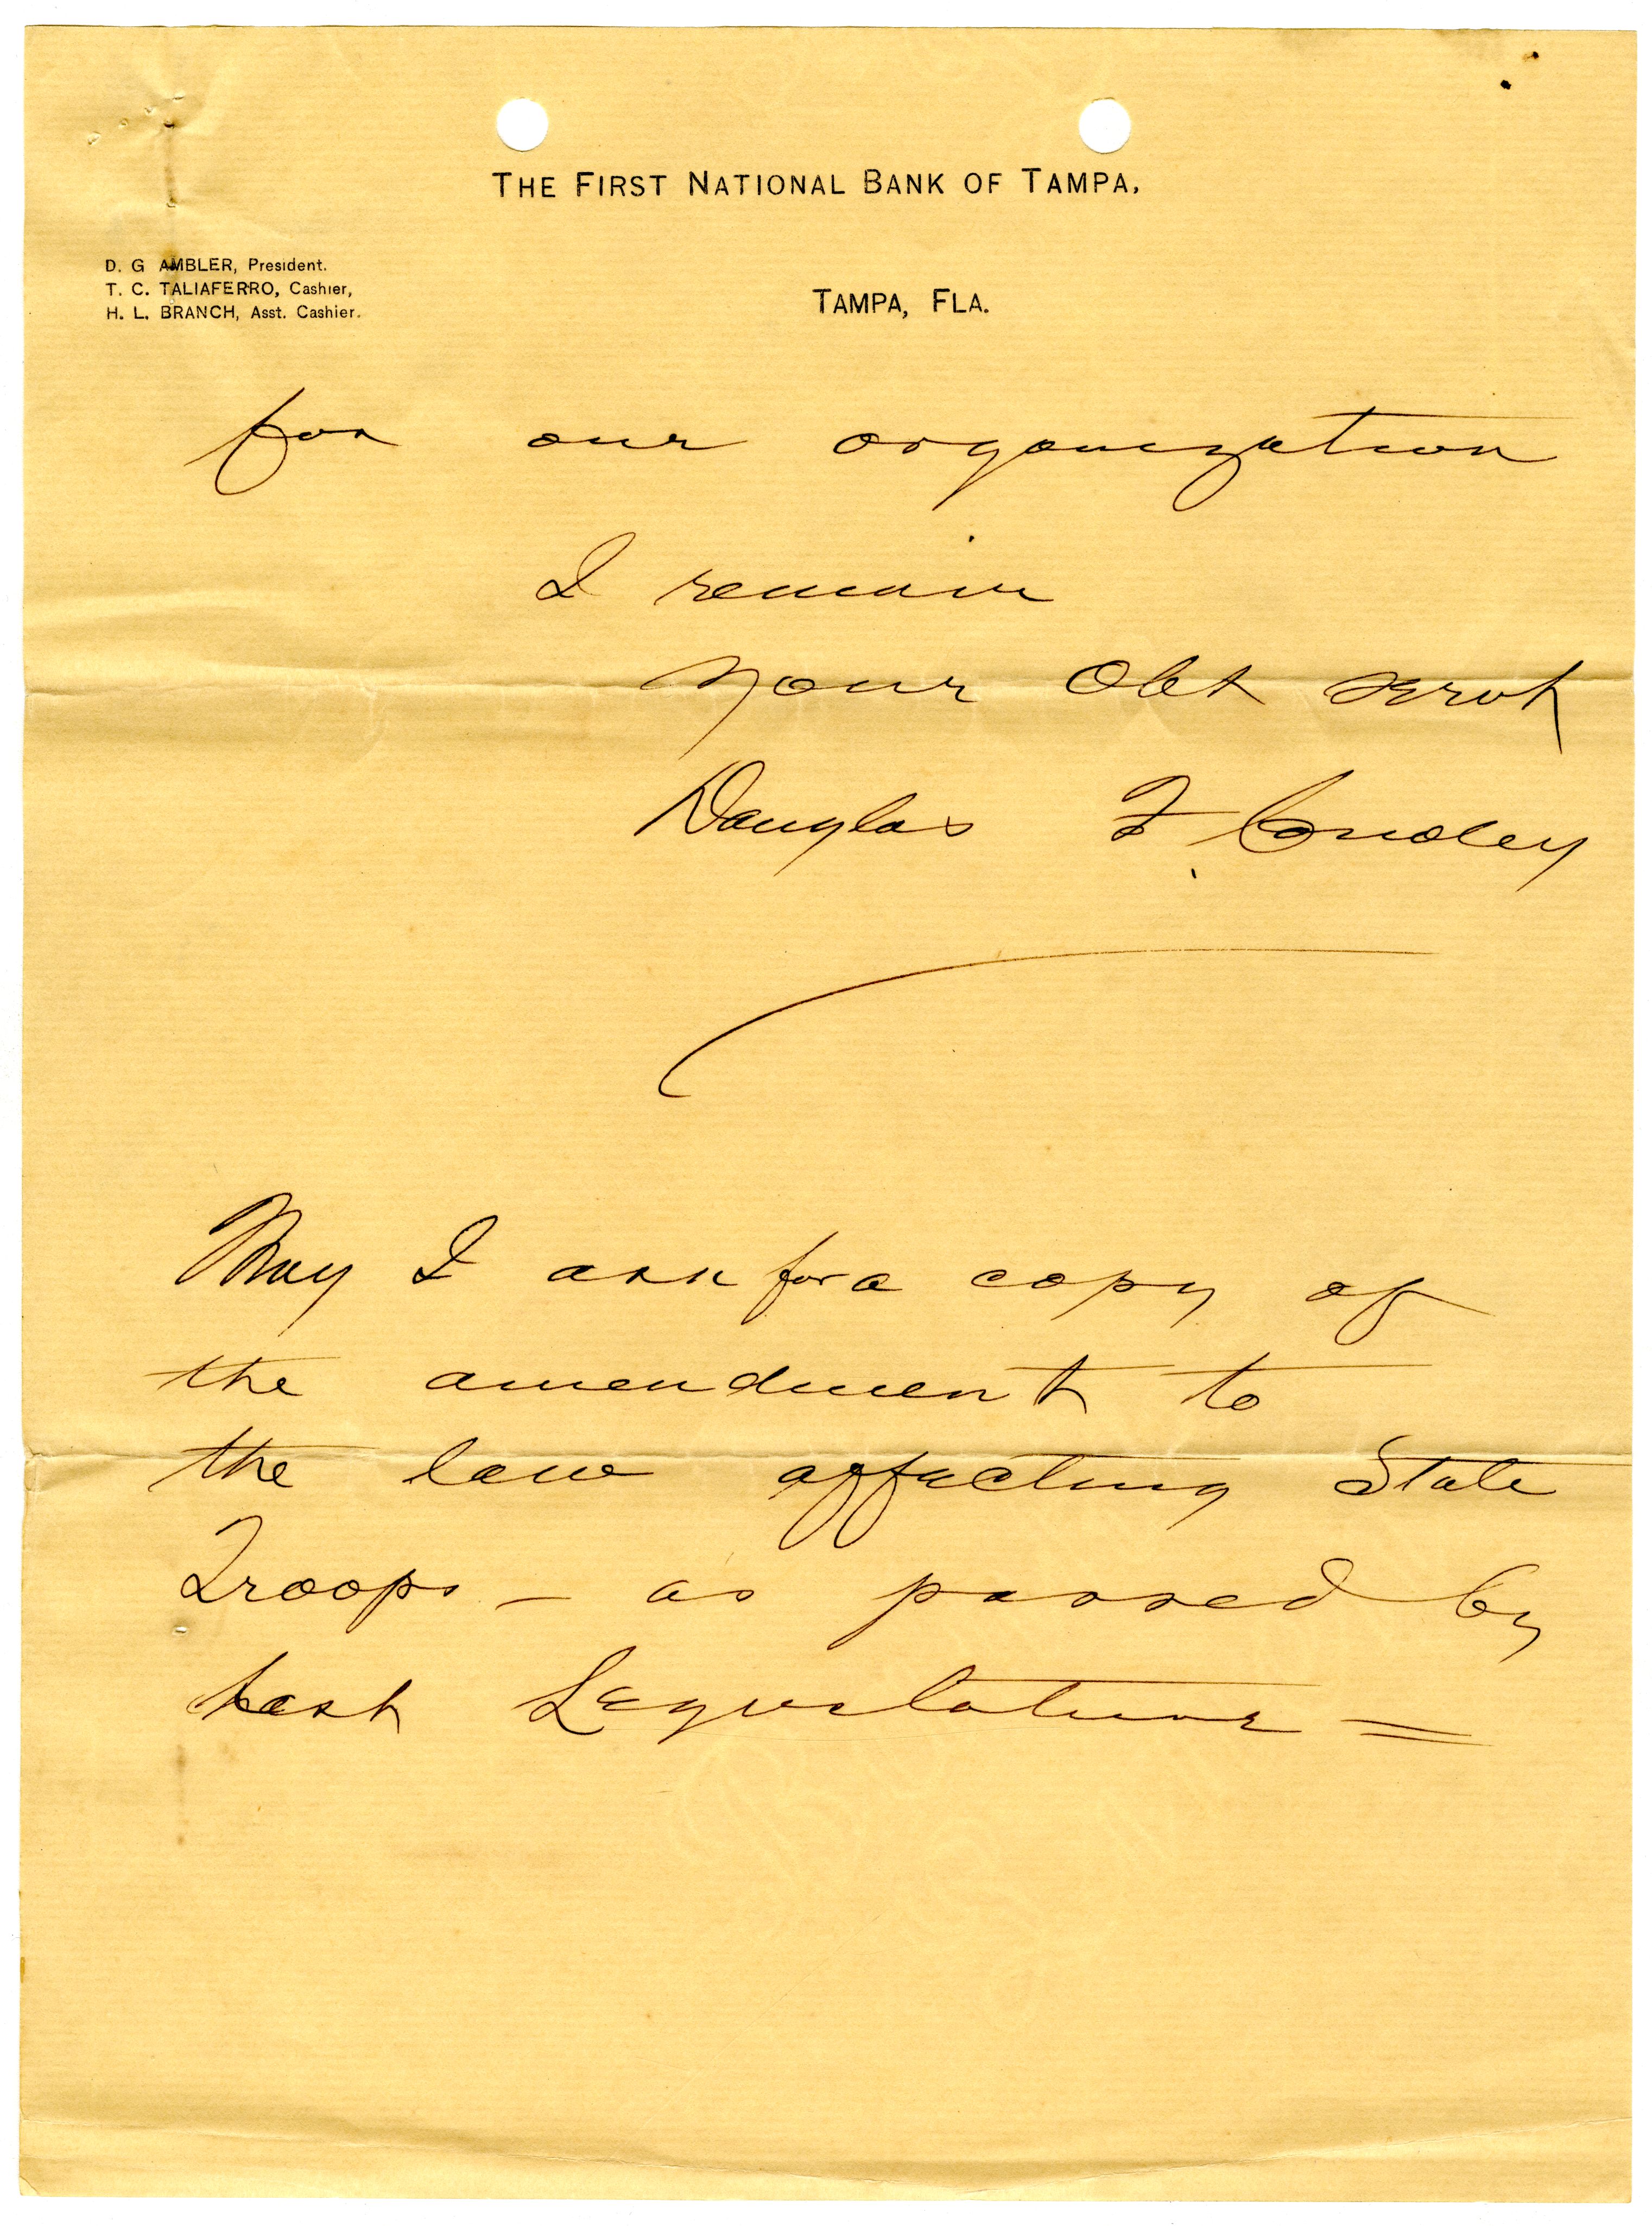 THE FIRST NATIONAL BANK OF TAMPA.
D. G AMBLER, President.
T. C. TALIAFERRO, Cashier,
H. L. BRANCH, Asst. Cashier.
TAMPA, FLA.
for our organization
I remain
your Obt servt
Douglas F. Conoley
May I ask for a copy of
the amendment to
the law affecting State
Troops – as passed by
last Legislature =